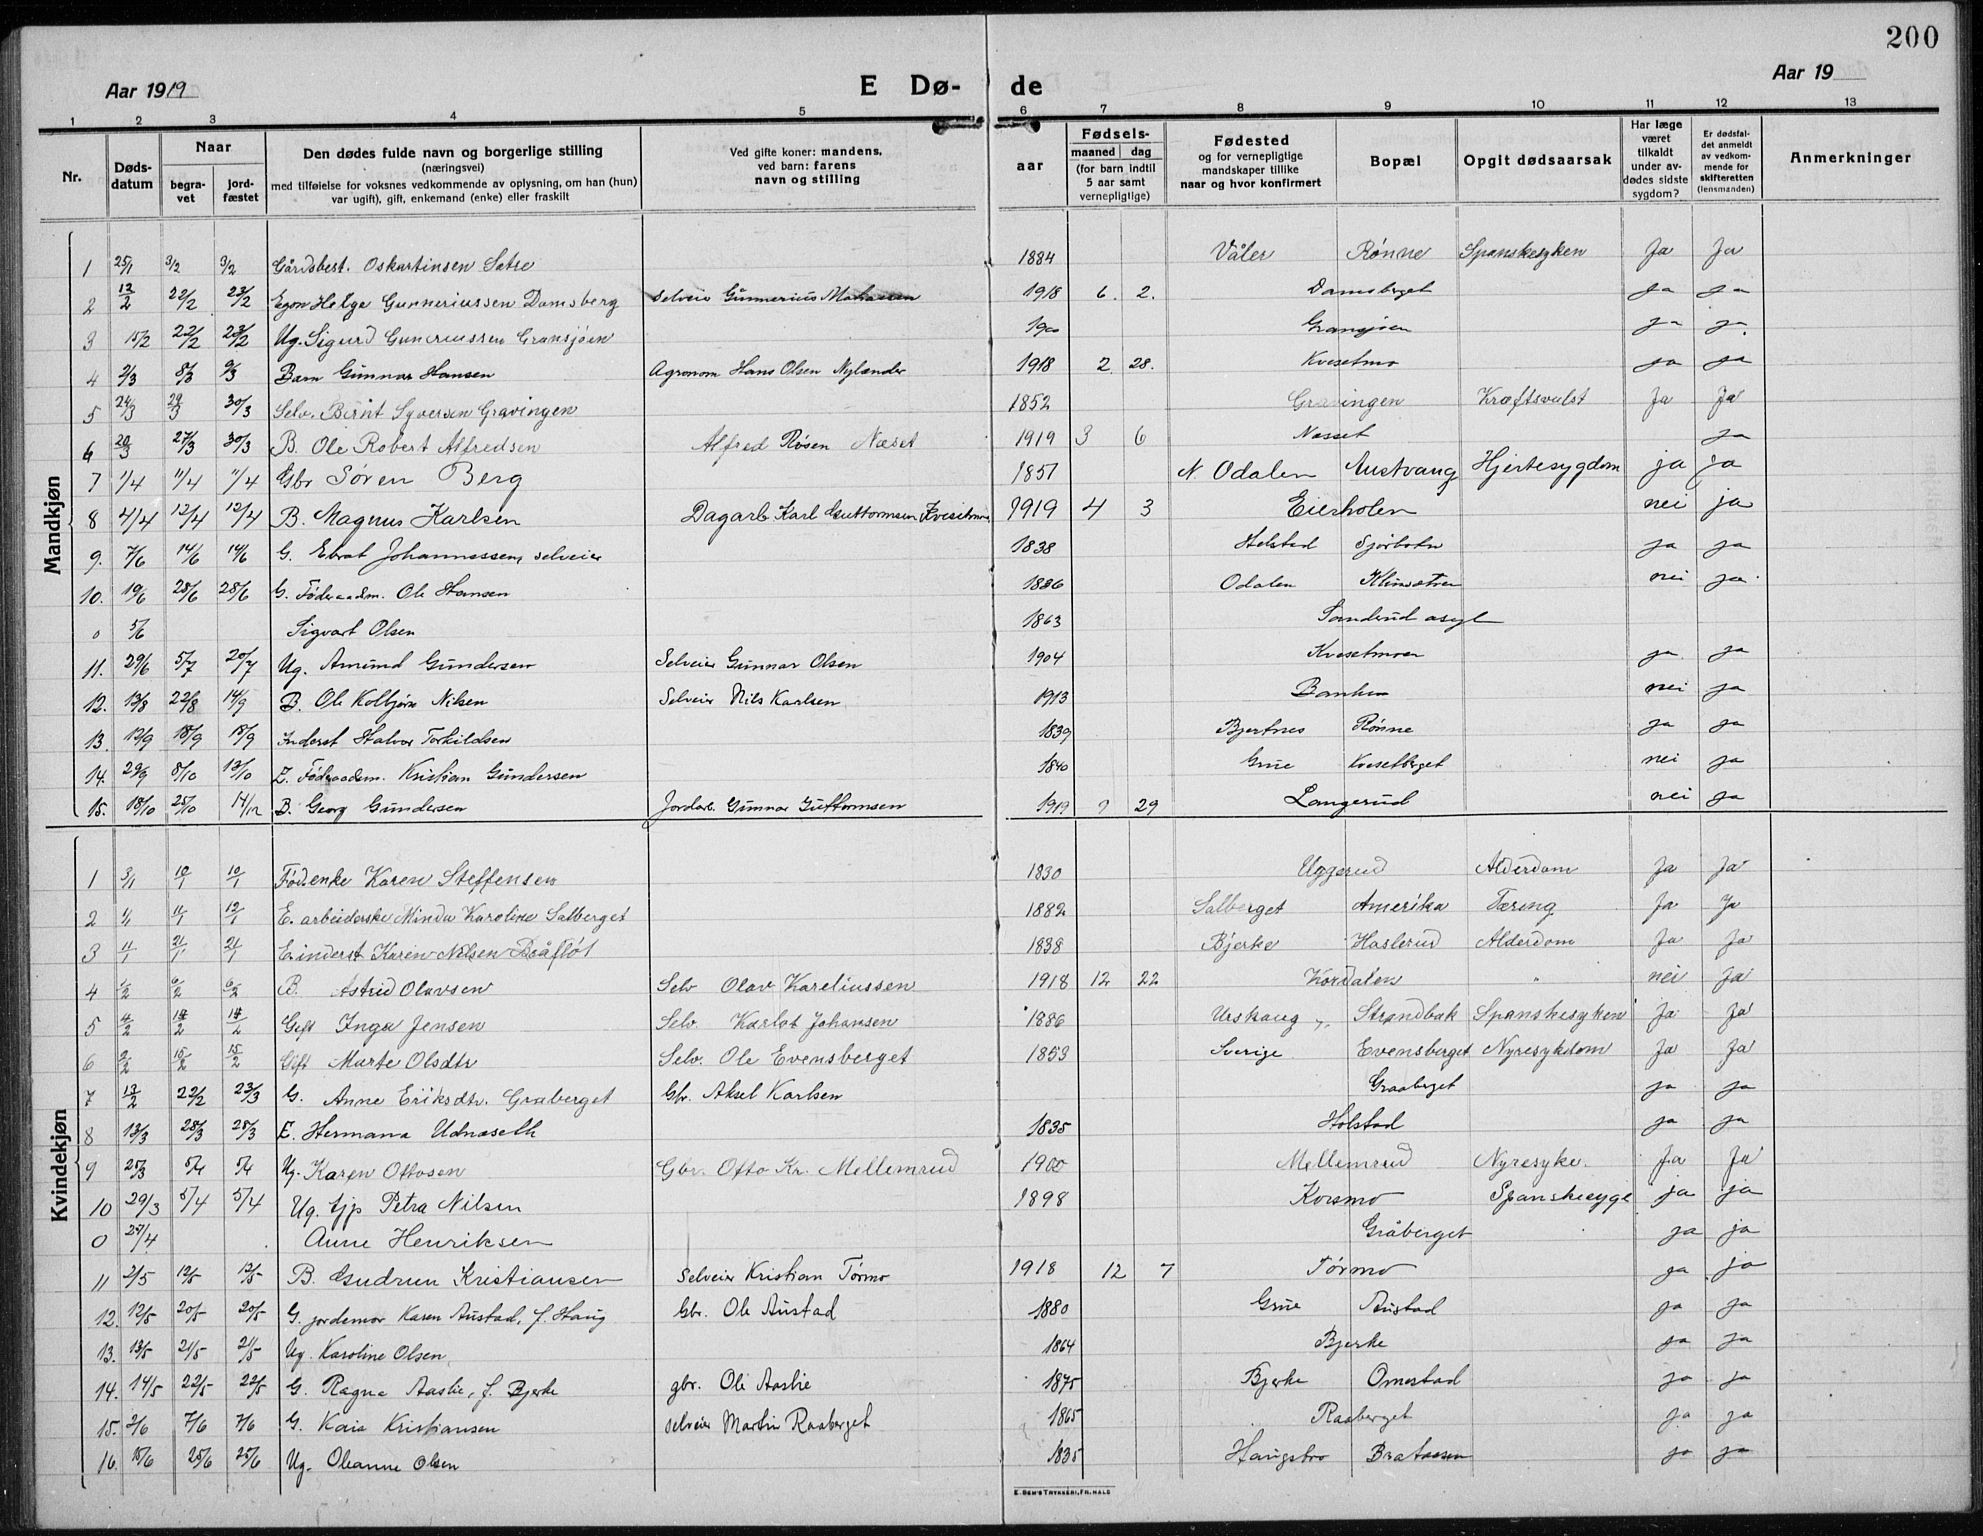 200
Aar 1919 E Dø- de Aar 19
1 2 3 4 5 6 7 8 9 10 11 12 13
Nr. Døds-datum Naar begravet jordfæstet Den dødes fulde navn og borgerlige stilling (næringsvei) med tilføielse for voksnes vedkommende av oplysning, om han (hun) var ugift), gift, enkemand (enke) eller fraskilt Ved gifte koner: mandens, ved barn: farens navn og stilling aar Fødsels- maaned dag (for barn indtil 5 aar samt vernepligtige) Fødested og for vernepligtige mandskaper tillike naar og hvor konfirmert Bopæl Opgit dødsaarsak Har læge været tilkaldt under avdødes sidste sygdom? Er dødsfaldet anmeldt av vedkommende for skifteretten (lensmanden) Anmerkninger
Mandkjøn
1 25/1 3/2 3/2 Gårdsbest. Oskartinsen Sætre 1884 Våler Rønne Spanskesyken Ja Ja
2 13/2 22/2 23/2 Egon Helge Gunneriussen Damsberg Selveier Gunnerius 1918 6. 2. Damsberget ja ja
3 15/2 22/2 23/2 Ug. Sigurd Gunneriussen Gransjøen 1900 Gransjøen ja ja.
4 2/3 8/3 9/3 Barn Gunnar Hansen Agronom Hans Olsen Nylænder 1918 2. 28. Kvesetmo ja ja
5 24/3 29/3 30/3 Selv. Bernt Syversen Gravingen 1852 Gravingen Kræftsvulst Ja Ja
6 20/3 27/3 30/3 B. Ole Robert Alfredsen Alfred Røsen Næset 1919 3 6 Næsset ja
7 1/4 11/4 11/4 Gbr Søren Berg 1851 N. Odalen Austvang Hjertesygdom ja ja
8 4/4 12/4 12/4 B. Magnus Karlsen Dagarb Karl Guttormsen Kvesetmoen 1919 4 3 Eierholen nei ja
9. 7/6 14/6 14/6 G. Ebrat Johannessen, selveier 1838 Helstad ja ja
10. 19/6 28/6 28/6 G. Føderaadm. Ole Hansen 1836 Odalen nei ja.
0 5/6 Sigvart Olsen 1863 Sanderud asyl
11. 29/6 5/7 20/7 Ug. Amund Gundersen Selveier Gunnar Olsen 1904 Kvesetmoen ja ja
12. 13/8 22/8 14/9 B. Ole Kolbjørn Nilsen Selveier Nils Karlsen 1913 nei ja
13. 12/9 18/9 18/9 Inderst Halvor Torkildsen 1839 Bjertnes Rønne ja ja
14. 29/9 8/10 13/10 E. Føderaadm. Kristian Gundersen 1840 Grue Kvesetberget nei ja
15. 18/10 25/10 14/12 B. Georg Gundersen Jordarb. Gunnar Guttormsen 1919 9 29 Langerud nei ja
Kvindekjøn
1 3/1 10/1 10/1 Fød.enke Karen Steffensen 1830 Uggerud Alderdom Ja Ja
2 4/1 11/1 12/1 E. arbeiderske Minda Karoline Salberget 1882 Salberget Amerika Tæring Ja Ja
3 11/1 21/1 21/1 E. inderst Karen Nilsen Bråfløt 1838 Bjerke Haslerud Alderdom Ja Ja
4 1/2 6/2 6/2 B. Astrid Olavsen Selv Olav Kareliussen 1918 12 22 Kordalen " nei ja
5 4/2 14/2 14/2 Gift Inga Jensen Selv. Karlot Johansen 1886 Urskaug Strandbak Spanskesyken Ja Ja
6 9/2 15/2 15/2 Gift Marte Olsdtr Selv. Ole Evensberget 1853 Sverige Evensberget Nyresykdom Ja Ja
7 13/2 22/2 23/3 G. Anne Eriksdtr. Graaberget Gbr. Aksel Karlsen Graaberget ja ja
8 13/3 28/3 28/3 E. Hermana Udnæseth 1835 Holstad ja ja
9 25/3 5/4 5/4 Ug. Karen Ottosen Gbr. Otto Kr. Mellemrud 1900 Mellemrud Nyresyke. Ja Ja
10 29/3 5/4 5/4 Ug. tjp Petra Nilsen 1898 Korsmo Spanskesyge ja ja
0 27/4 Anne Henriksen Gråberget ja ja
11 2/5 12/5 12/5 B. Gudrun Kristiansen Selveier Kristian Tørmo 1918 12 7 Tørmo ja ja
12. 12/5 20/5 20/5 G. jordemor Karen Austad, f. Haug Gbr. Ole Austad 1880 Grue Austad ja ja
13. 13/5 21/5 21/5 Ug. Karoline Olsen 1864 Bjerke ja ja
14. 14/5 22/5 22/5 G. Ragna Aaslie, f. Bjerke gbr. Ole Aaslie 1875 Bjerke Omestad ja ja
15. 2/6 7/6 7/6 G. Kaia Kristiansen selveier Martin Raaberget 1865 Raaberget ja ja
16. 15/6 25/6 25/6 Ug. Oleanne Olsen 1835 Haugsbro Brataasen ja ja
E. SEM'S TRYKKERI, FR.HALD